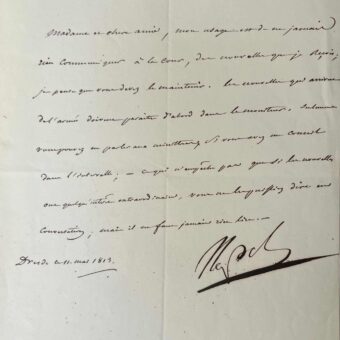 Madame et chere amie, mon usage est de ne jamais
rien communiquer à la cour, des nouvelles que je reçois,
je pense que vous devez le maintenir. les nouvelles qui arrivent
de l'armée doivent paraître d'abord dans le moniteur.
vous pouvez en parler aux ministres, si vous avez un conseil
dans l'intervalle; ce qui n'empêche pas que si les nouvelles
ont quelque intérêt extraordinaire, vous ne le puissiez dire en
conversation; mais il ne faut jamais rien lire. —
Dresde le 11 mai 1813.